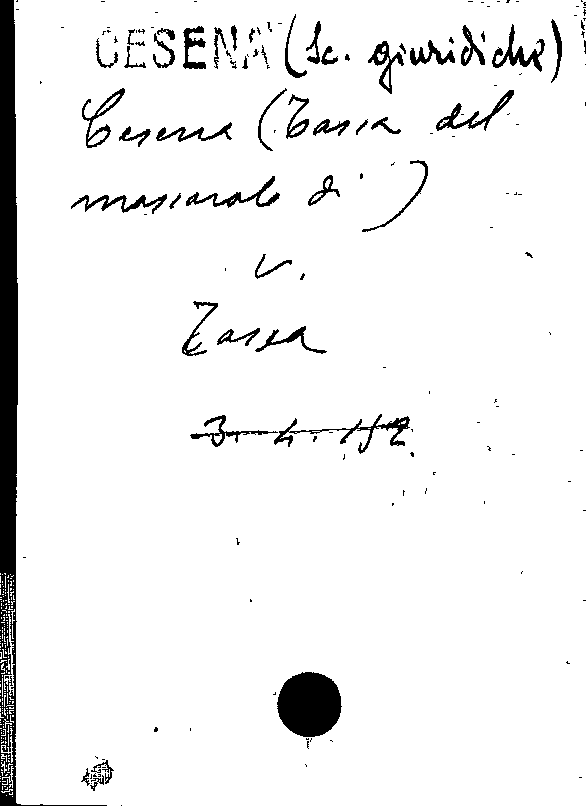 CESENA (Sc. giuridiche)
Cesena (Tassa del
di )
v.
Tassa
3. 4. 192